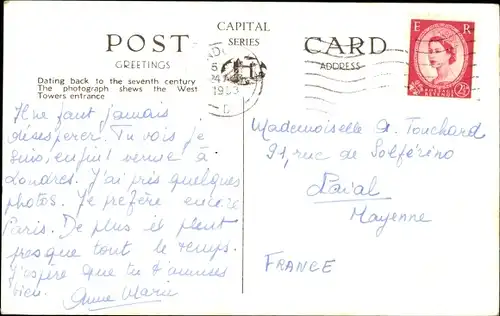 POST
GREETINGS
CAPITAL
SERIES
CARD
ADDRESS
E R
Dating back to the seventh century
The photograph shews the West
Towers entrance
1963
2½
Il ne faut jamais
désespérer. Tu vois je
suis, enfin! venue à
Londres. J'ai pris quelques
photos. Je préfère encore
Paris. De plus il pleut
presque tout le temps.
J'espère que tu t'amuses
bien. Anne Marie
Mademoiselle A. Touchard
91, rue de Solférino
Laval
Mayenne
FRANCE